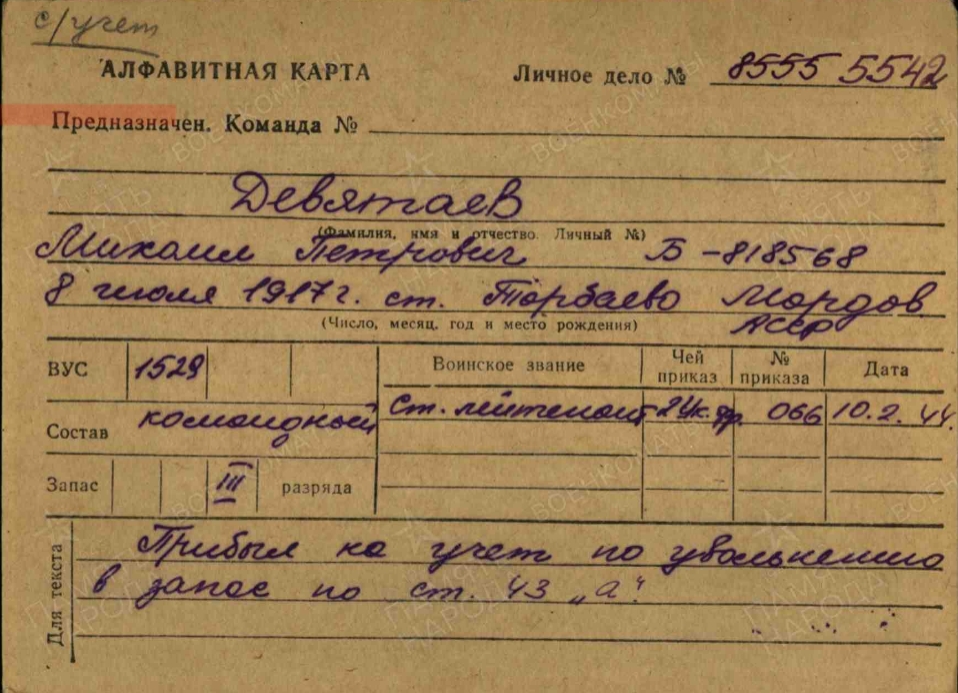 с/учет
АЛФАВИТНАЯ КАРТА Личное дело № 8555 5542
Предназначен. Команда №
Девятаев
(Фамилия, имя и отчество. Личный №)
Михаил Петрович Б-818568
8 июля 1917 г. ст. Торбаево Мордов
АССР
(Число, месяц, год и место рождения)
ВУС 1529 Воинское звание Чей приказ № приказа Дата
Состав командный ст. лейтенант 066 10.2.44.
Запас III разряда
Для текста
Прибыл на учет по увольнению
в запас по ст. 43 „а“
ПАМЯТЬ НАРОДА
ВОЕНКОМАТЫ